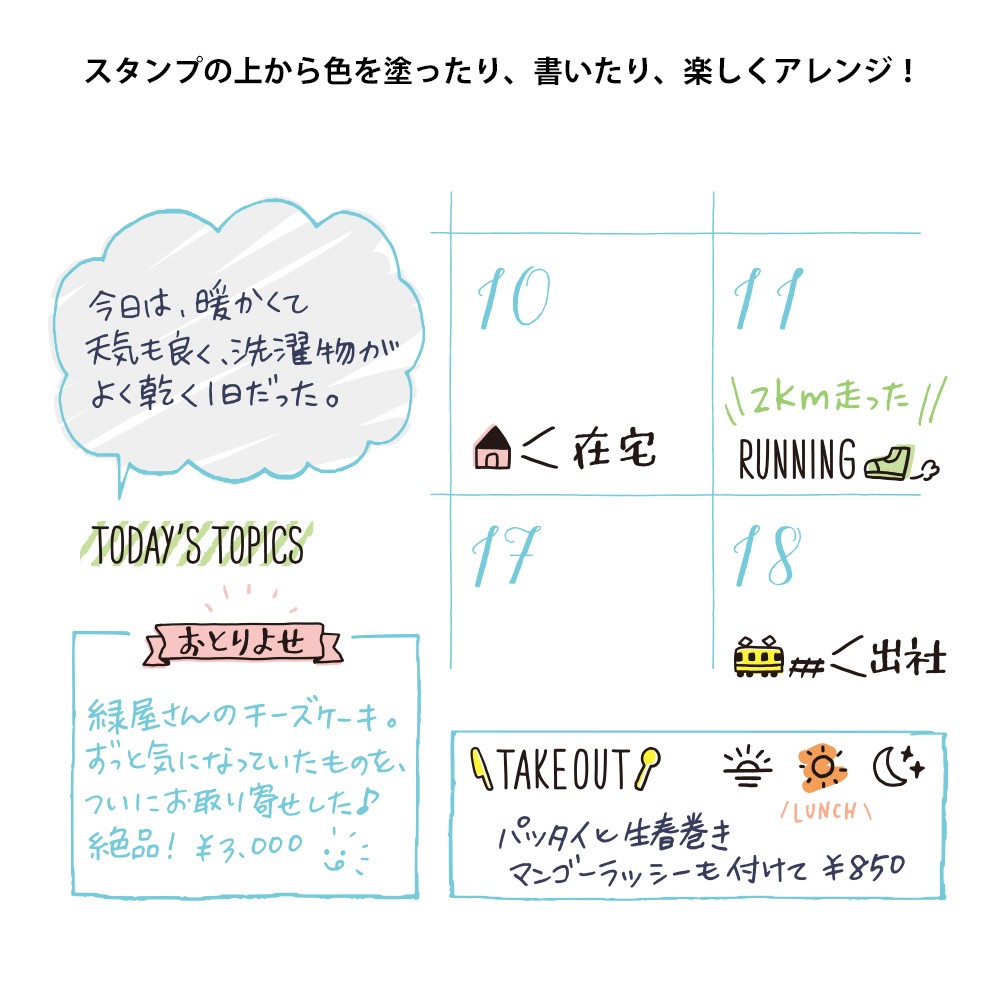 スタンプの上から色を塗ったり、書いたり、楽しくアレンジ！
今日は、暖かくて
天気も良く、洗濯物が
よく乾く1日だった。
TODAY'S TOPICS
10
11
在宅
2km走った
RUNNING
17
18
出社
おとりよせ
緑屋さんのチーズケーキ。
ずっと気になっていたものを、
ついにお取り寄せした♪
絶品！ ¥3,000
TAKEOUT
LUNCH
パッタイと生春巻き
マンゴーラッシーも付けて ¥850